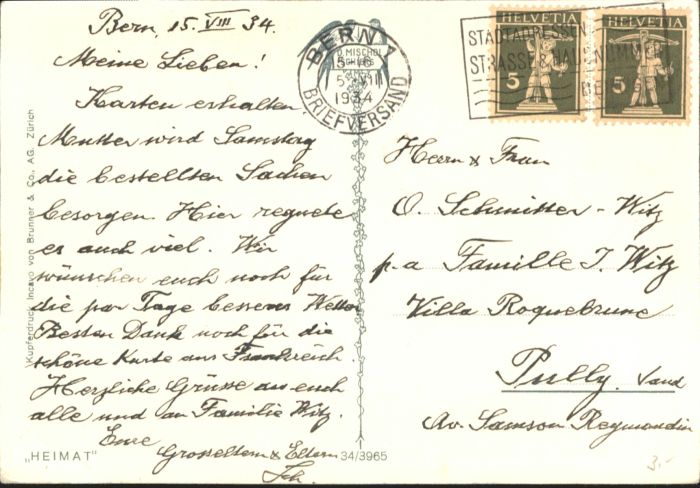 Bern, 15. VIII 34.
Meine Lieben!
Karten erhalten.
Mutter wird Samstag
die bestellten Sachen
besorgen. Hier regnete
es auch viel. Wir
wünschen euch noch für
die par Tage besseres Wetter
Besten Dank noch für die
schöne Karte aus Frankreich.
Herzliche Grüsse an euch
alle und an Familie Witz.
Eure
Grosseltern & Eltern
Sch.
"HEIMAT"
34/3965
Kupferdruck Incavo von Brunner & Co., AG. Zürich
BERN 1
1934
BRIEFVERSAND
STADTADRESSEN
STRASSE & HAUSNUMMER
HELVETIA
5
HELVETIA
5
Herrn & Frau
O. Schmitter-Witz
p.a Famille J. Witz
Villa Roquebrune
Pully. Vaud
Av. Samson Reymondin
3.-